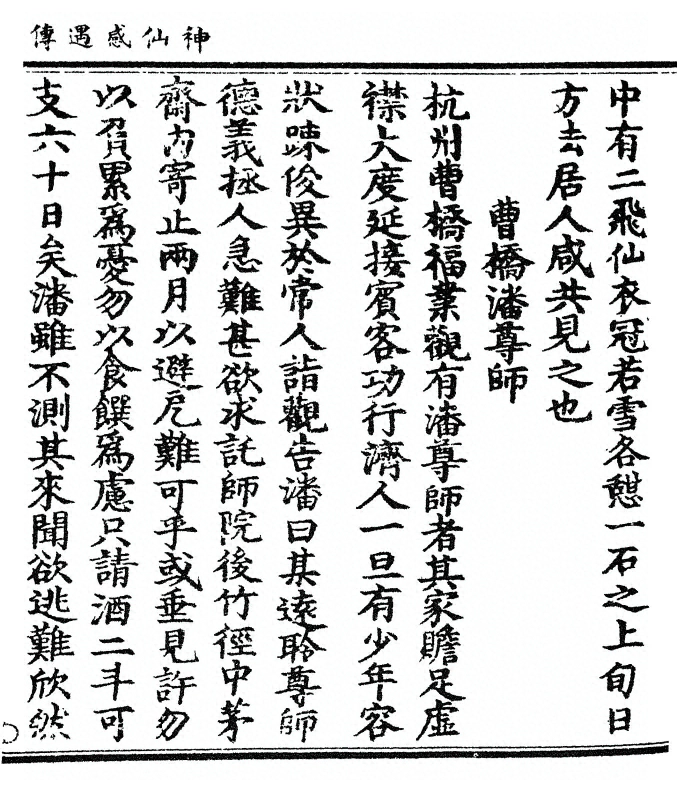 神仙感遇傳
中有二飛仙衣冠若雪各憇一石之上旬日
方去居人咸共見之也
曹橋潘尊師
杭州曹橋福業觀有潘尊師者其家贍足虛
襟大度延接賓客功行濟人一旦有少年容
狀踈俊異於常人詣觀告潘曰某遠聆尊師
德義拯人急難甚欲求託師院後竹徑中茅
齋內寄止兩月以避厄難可乎或垂見許勿
以負累爲憂勿以食饌爲慮只請酒二斗可
支六十日矣潘雖不測其來聞欲逃難欣然